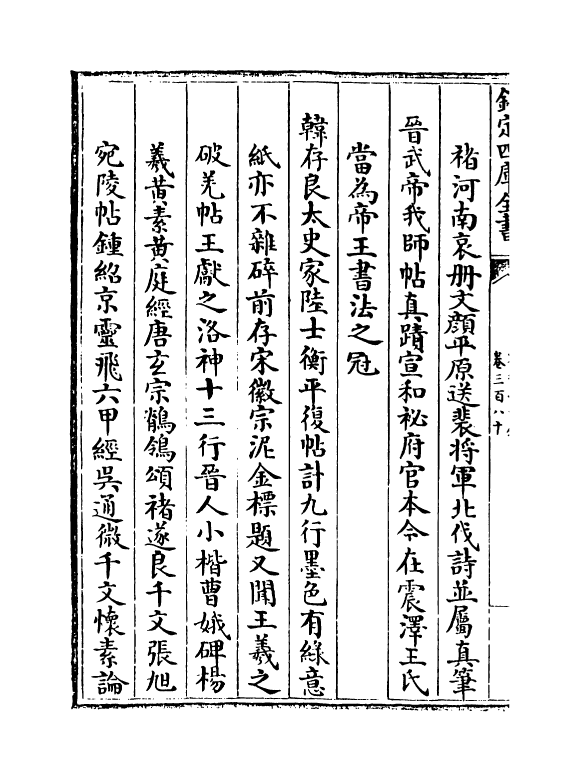 欽定四庫全書
卷三百八十
褚河南哀册文顔平原送裴將軍北伐詩並屬真筆
晉武帝我師帖真蹟宣和祕府官本今在震澤王氏
當為帝王書法之冠
韓存良太史家陸士衡平復帖計九行墨色有緑意
紙亦不雜碎前存宋徽宗泥金標題又聞王羲之
破羌帖王獻之洛神十三行晉人小楷曹娥碑楊
羲黄素黄庭經唐玄宗鶺鴒頌褚遂良千文張旭
宛陵帖鍾紹京靈飛六甲經吳通微千文懷素論